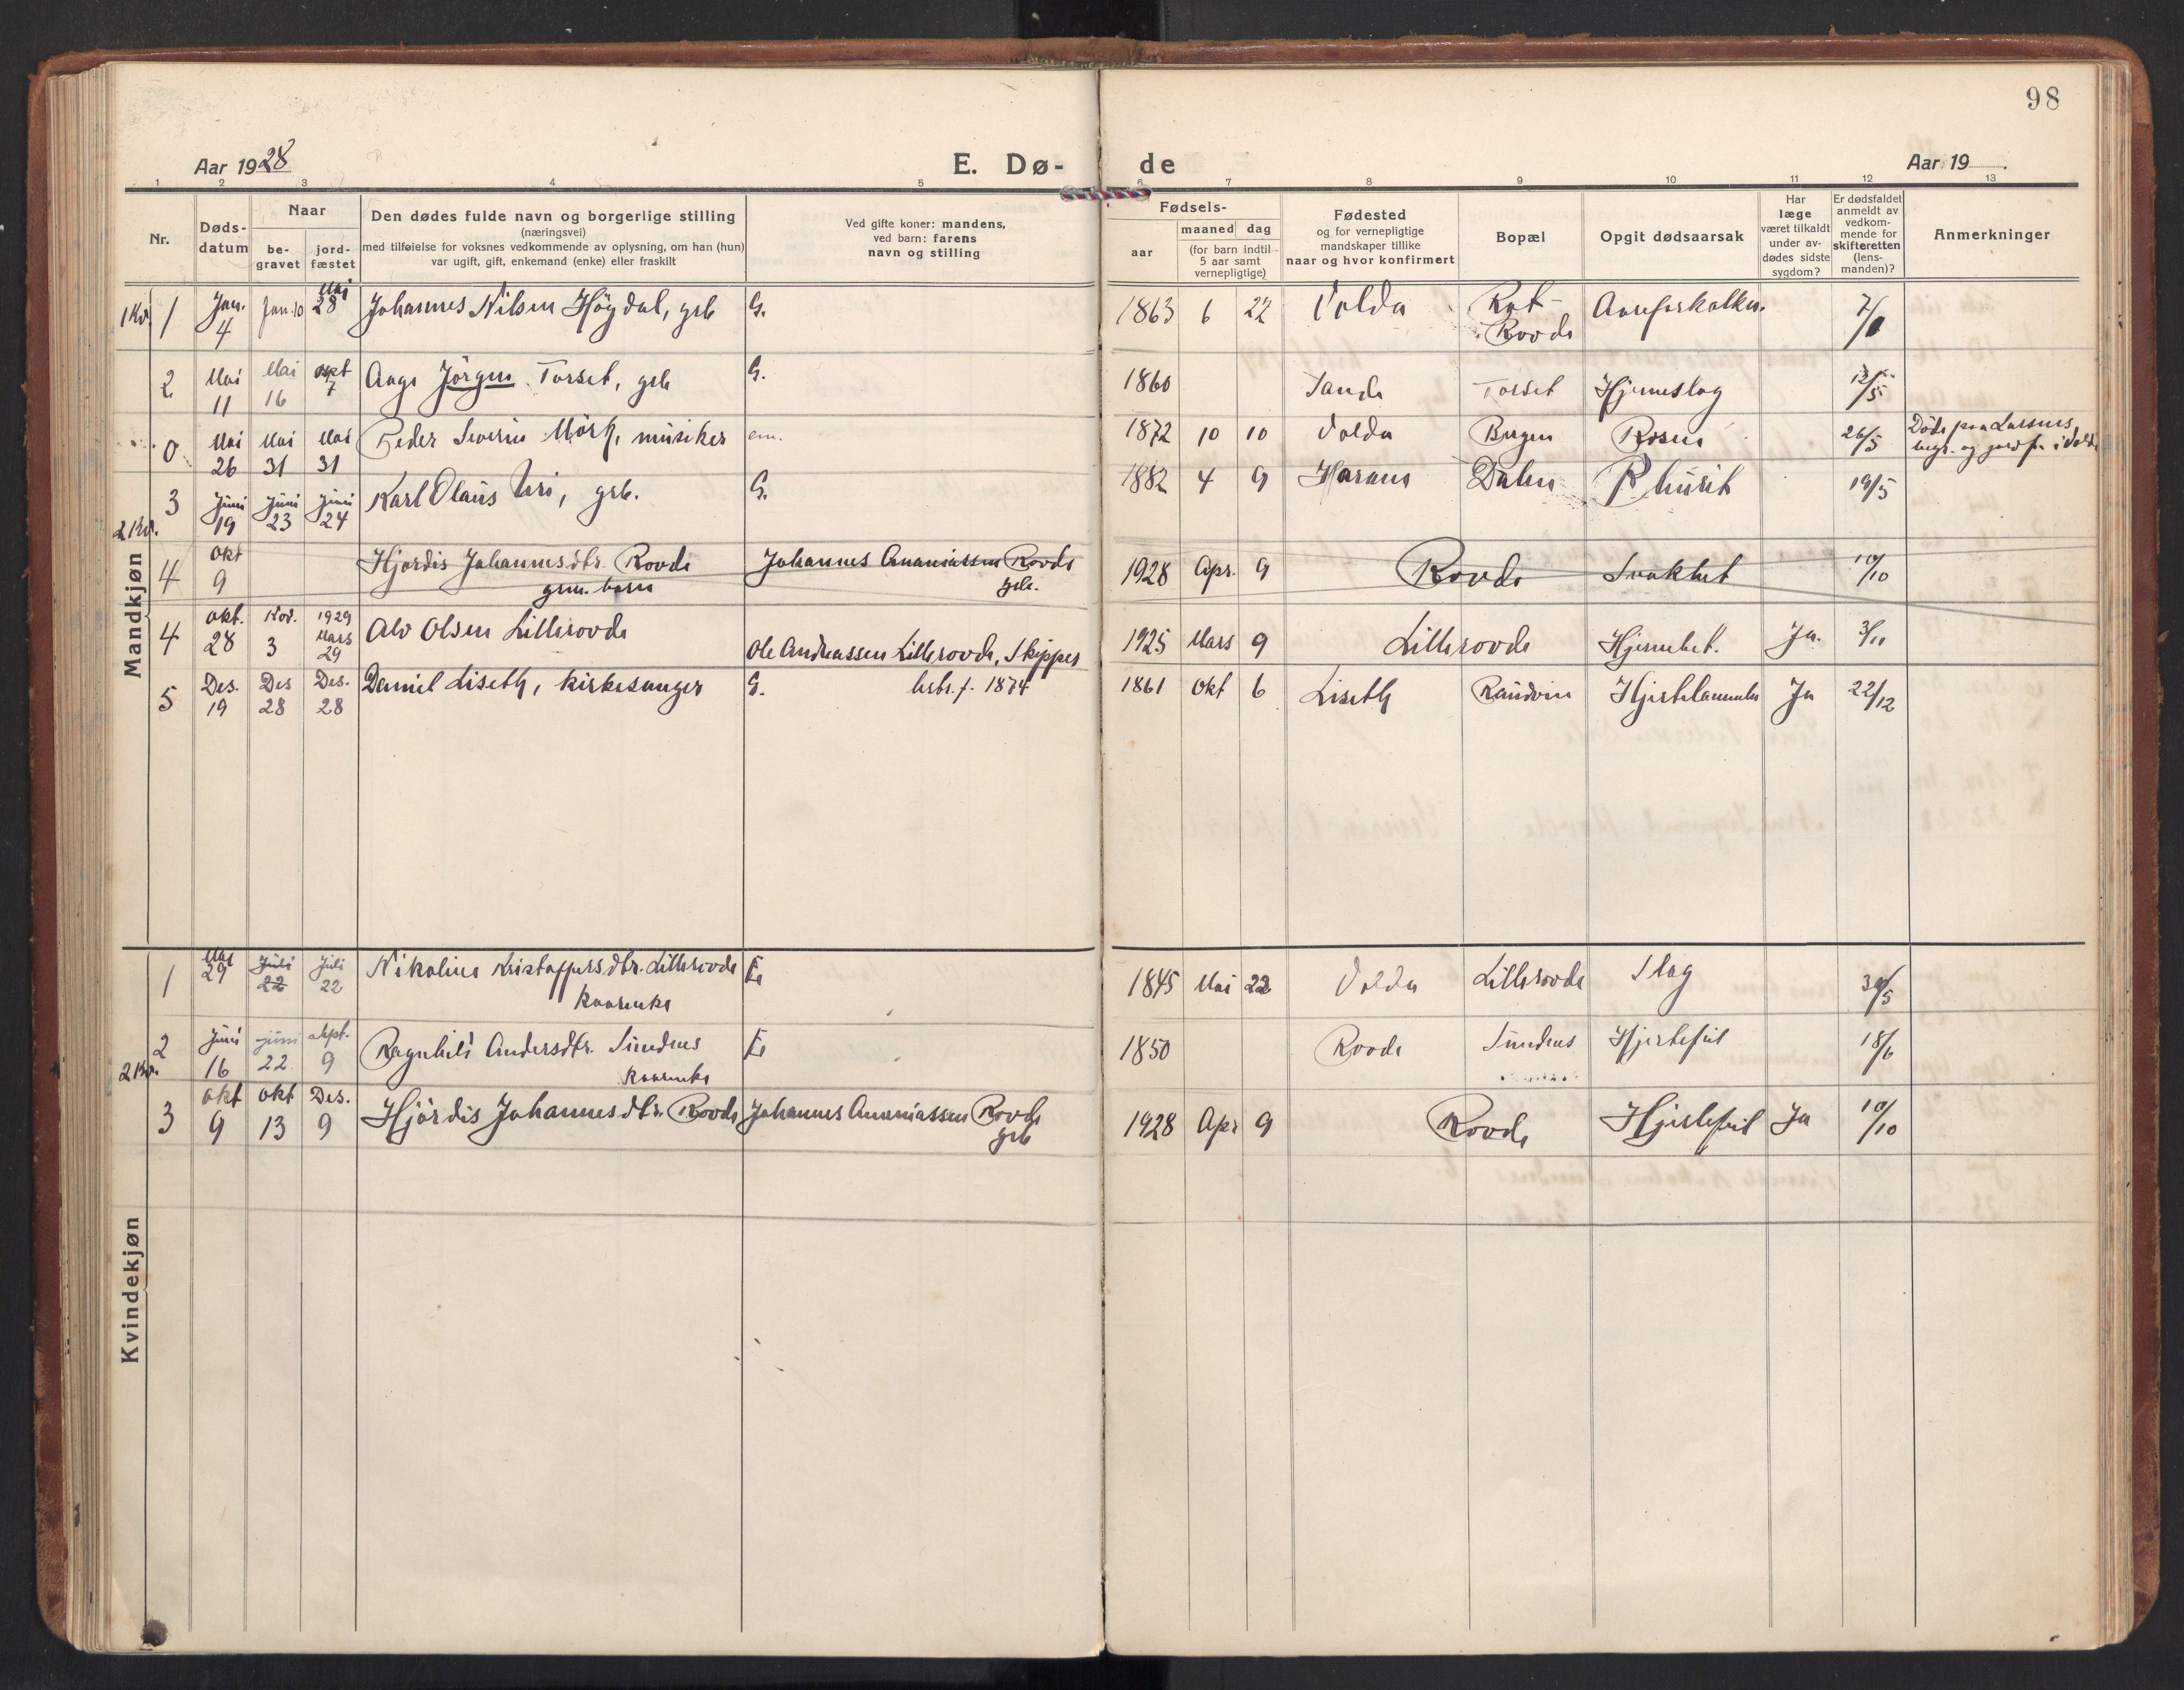 98
Aar 1928
E. Dø-
de
Aar 19
1 2 3 4 5 6 7 8 9 10 11 12 13
Nr.
Døds-
datum
Naar
be-
gravet
jord-
fæstet
Den dødes fulde navn og borgerlige stilling
(næringsvei)
med tilføielse for voksnes vedkommende av oplysning, om han (hun)
var ugift, gift, enkemand (enke) eller fraskilt
Ved gifte koner: mandens,
ved barn: farens
navn og stilling
Fødsels-
aar
maaned dag
(for barn indtil
5 aar samt
vernepligtige)
Fødested
og for vernepligtige
mandskaper tillike
naar og hvor konfirmert
Bopæl
Opgit dødsaarsak
Har
læge
været tilkaldt
under av-
dødes sidste
sygdom?
Er dødsfaldet
anmeldt av
vedkom-
mende for
skifteretten
(lens-
manden)?
Anmerkninger
Mandkjøn
1 Kv. 1 Jan. 4 Jan. 10 Mai 28 Johannes Nilsen Høgdal, grb G. 1863 6 22 Volda Rot- Rovde Aareforkalkn.
2 Mai 11 Mai 16 Aage Jörgen Torset, grb G. 1860 Sande Torset Hjerneslag 12/5
0 Mai 26 Mai 31 Mai 31 Peder Severin Mörk, musiker em. 1872 10 10 Volda Bergen Rosen 26/5 Döde paa Larsnes, begr. og jordf. i Volda
3 Juni 19 Juni 23 Juni 24 Karl Olaus Uri, grb. G. 1882 4 9 Harams Dalen 19/5
2 Kv.
4 Okt 9 Hjordis Johannesdtr. Rovde Johannes Ananiassen Rovde 1928 Apr. 9 Rovde Svakhet 10/10
grm. barn grb.
4 Okt. 28 Nov. 3 1929 Mars 29 Alv Olsen Lillerovde Ole Andreassen Lillerovde, Skipper 1925 Mars 9 Lillerovde Hjernebet. Ja. 3/11
5 Des. 19 Des 28 Des. 28 Daniel Liseth, kirkesanger G. f. 1874 1861 Okt 6 Liseth Raudvin Hjertelammelse Ja 22/12
Kvindekjøn
1 Mai 29 Juli 22 Juli 22 Nikoline Kristoffersdtr. Lillerovde E. 1845 Mai 22 Volda Lillerovde Slag 30/5
kaarenke
2 Juni 16 juni 22 Sept. 9 Ragnhild Andersdtr. Sundnes E. 1850 Rovde Sundnes Hjertefeil 18/6
2 Kv. kaarenke
3 Okt 9 Okt 13 Des. 9 Hjördis Johannesdtr. Rovde Johannes Ananiassen Rovde 1928 Apr 9 Rovde Hjertefeil Ja 10/10
grb